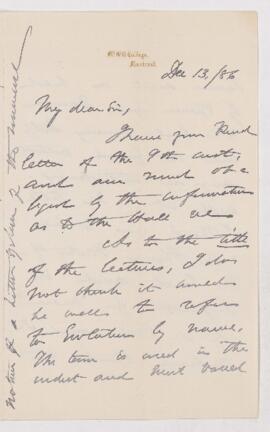 McGill College,
Montreal.
Dec 13/86
My dear Sir,
I have your kind
letter of the 9th inst,
and am much ob-
liged by the information
as to the Hall &c
As to the title
of the lectures, I do
not think it would
be well to refer
to Evolution by name.
The term is used in the
and
notice of a better opening of the museum